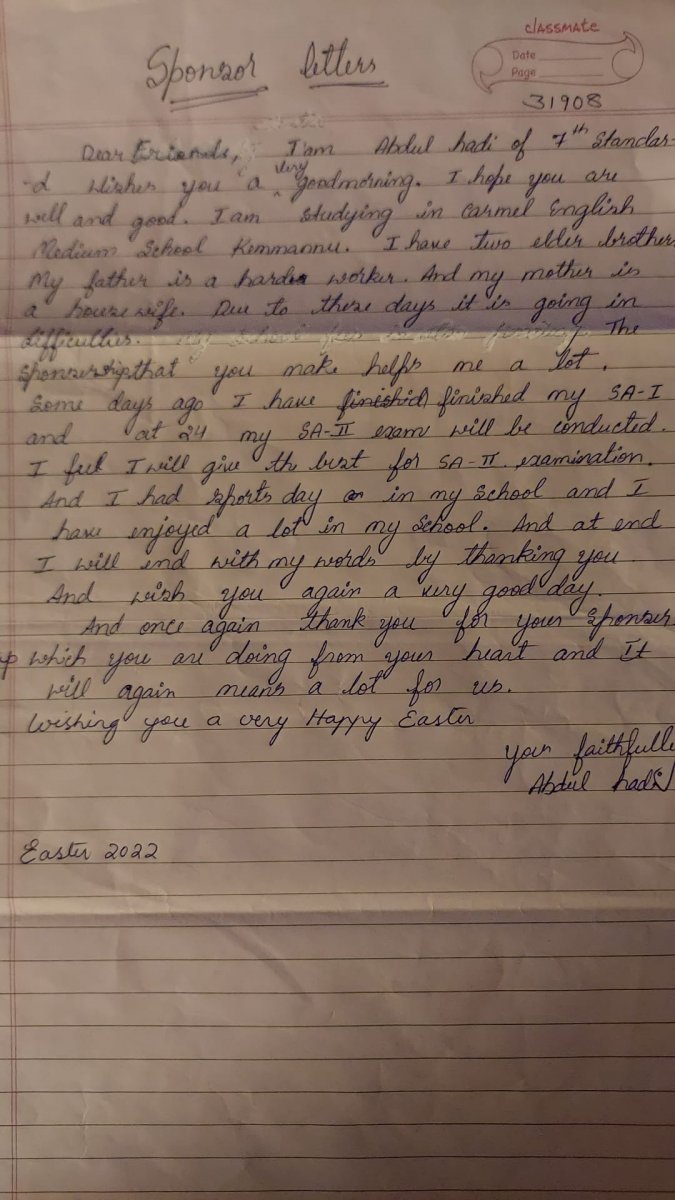 Sponsor letters
classmate
Date
Page
31908
Dear Friends, I am Abdul hadi of 7th Standar-
d wishes you a very goodmorning. I hope you are
well and good. I am studying in Carmel English
Medium School Kemmannu. I have two elder brothers
My father is a hard worker. And my mother is
a house wife. Due to these days it is going in
difficulties. The
Sponsership that you make helps me a lot.
Some days ago I have finished my SA-I
and at 24 my SA-II exam will be conducted.
I feel I will give the best for SA-II examination.
And I had sports day in my School and I
have enjoyed a lot in my School. And at end
I will end with my words by thanking you
And wish you again a very good day.
And once again thank you for your Sponser
p which you are doing from your heart and It
will again means a lot for us.
Wishing you a very Happy Easter
your faithfulle
Abdul hadi
Easter 2022